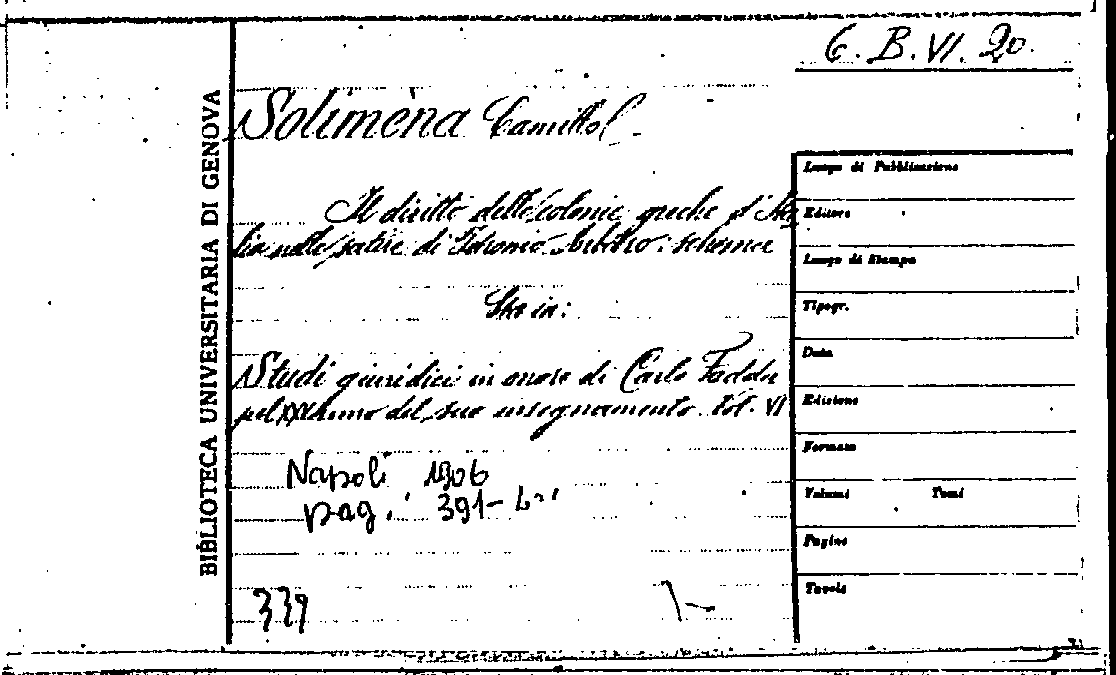 6. B. VI. 20.
BIBLIOTECA UNIVERSITARIA DI GENOVA
Solimena Camillo
Il diritto delle colonie greche d'Ita
lia nelle satire di Petronio Arbitro: schema
Sta in:
Studi giuridici in onore di Carlo Fadda
pel XXV anno del suo insegnamento. Vol. VI
Napoli 1906
pag. 391-
339
Luogo di Pubblicazione
Editore
Luogo di Stampa
Tipogr.
Data
Edizione
Formato
Volumi Tomi
Pagine
Tavole